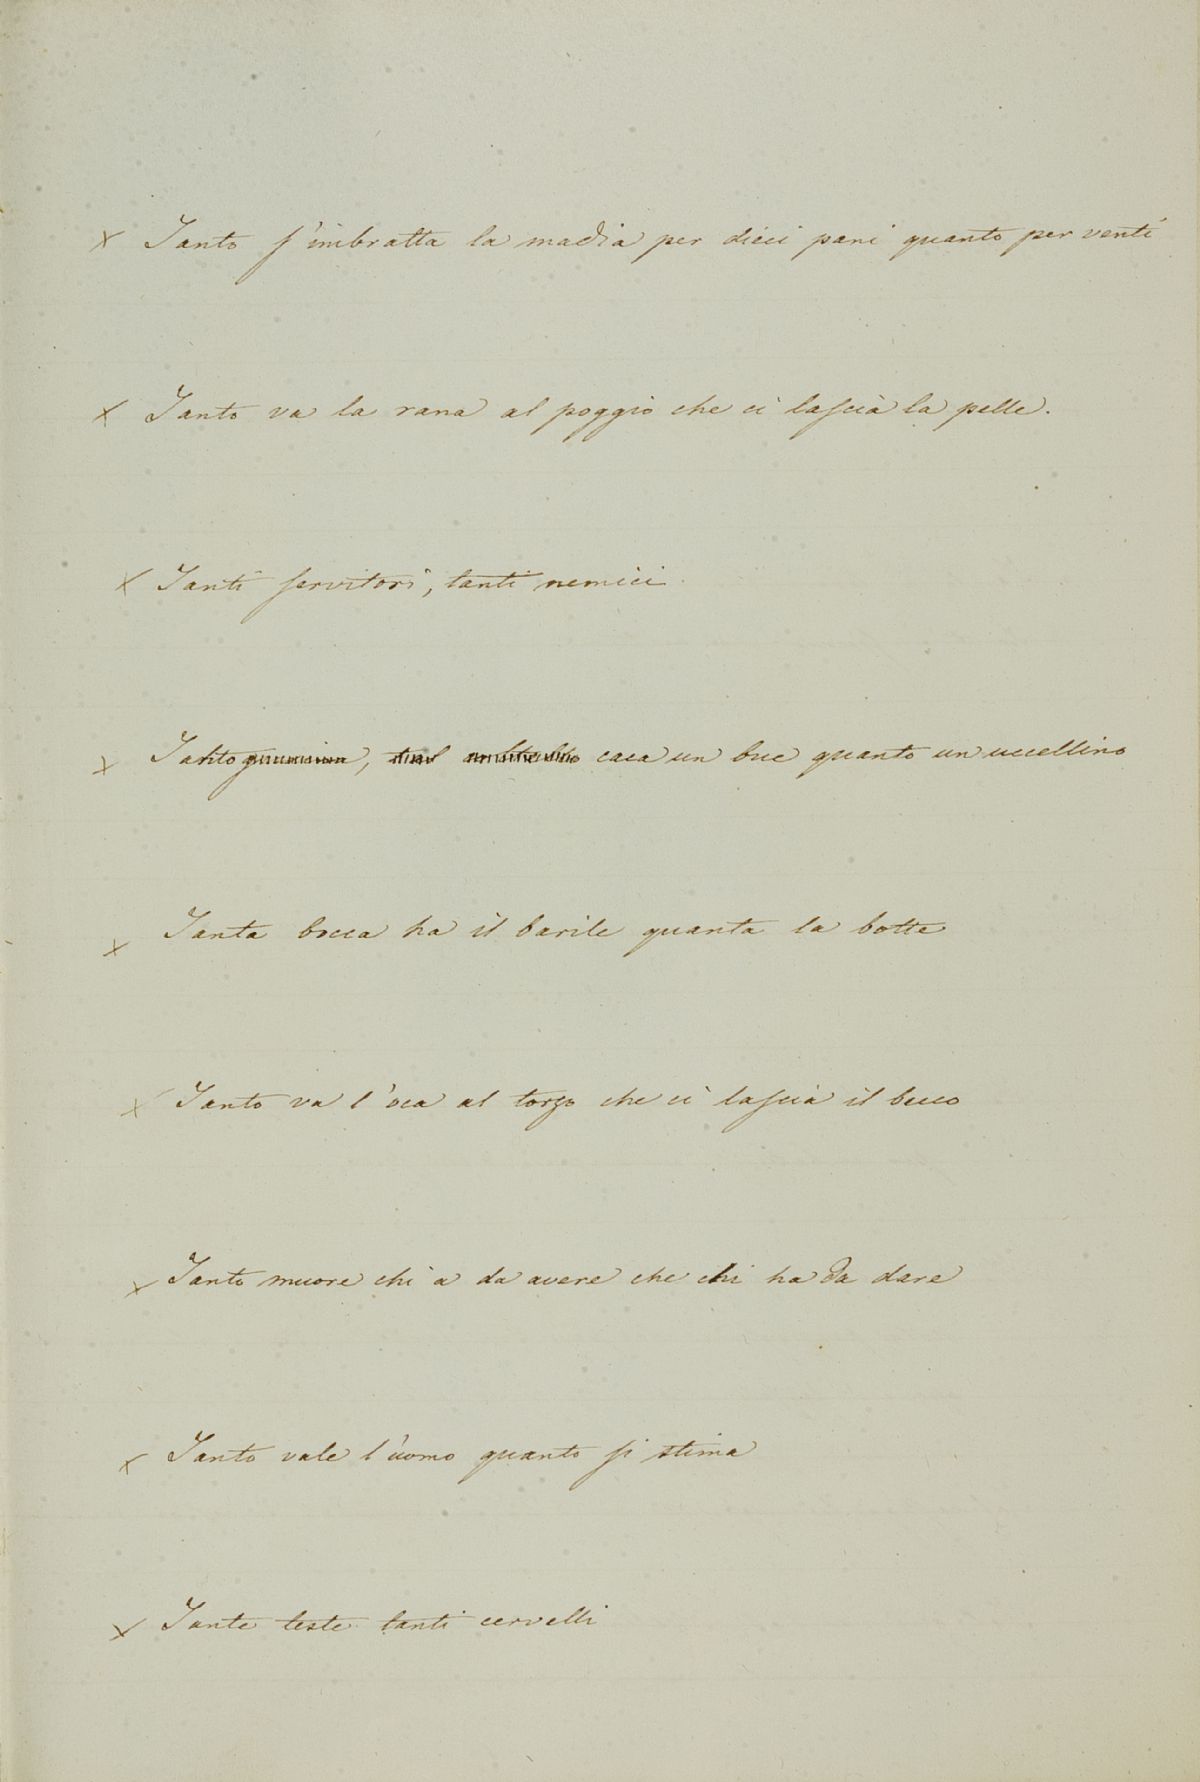 x Tanto s'imbratta la madia per dieci pani quanto per venti
x Tanto va la rana al poggio che ci lascia la pelle.
x Tanti servitori, tanti nemici
x Tanto , caca un bue quanto un uccellino
x Tanta bocca ha il barile quanta la botte
x Tanto va l'oca al torzo che ci lascia il becco
x Tanto muore chi a da avere che chi ha da dare
x Tanto vale l'uomo quanto si stima
x Tante teste tanti cervelli